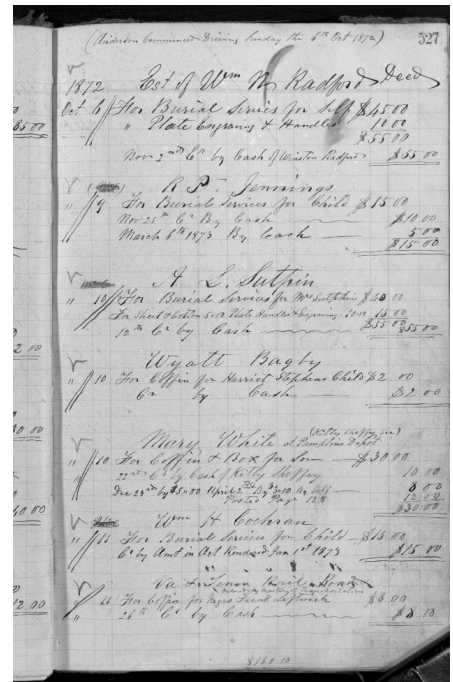 (Anderson Commenced Driving Sunday the 6th Oct 1872)
327
1872 Est of Wm N Radford Decd
Oct 6 For Burial Services for Self $45 00
" Plate Engraving & Handles 10 00
$55 00
Nov 2nd Cr by Cash of Winston Radford $55 00
R P. Jennings
" 9 For Burial Services for Child $15 00
Nov 25th Cr By Cash $10 00
March 6th 1873 By Cash 5 00
$15 00
A L. Sutpin
" 10 For Burial Services for Mrs Sutphin $40 00
For Shoot & Cotton 5 00 Plate Handles & Engraving 10 00 15 00
12th Cr by Cash $55 00 $55 00
Wyatt Bagby
" 10 For Coffin for Harriet Stephens Child $2 00
Cr by Cash $2 00
Mary White at Pamplins Depot
" 10 For Coffin & Box for Son $30 00
22nd Cr by Cash of Kitty Sheffey 10 00
8 00
Posted Page 128 12 00
$30 00
Wm H Cochran
" 11 For Burial Services for Child $15 00
Cr by Amt in Act Rendered Jan 1st 1873 $15 00
Va & Tenn Rail Road
" 11 For Coffin for Negro Frank Leftwich $8 00
" 26th Cr by Cash $8 00
$180.00
85 00
2 00
30 00
40 00
12 00